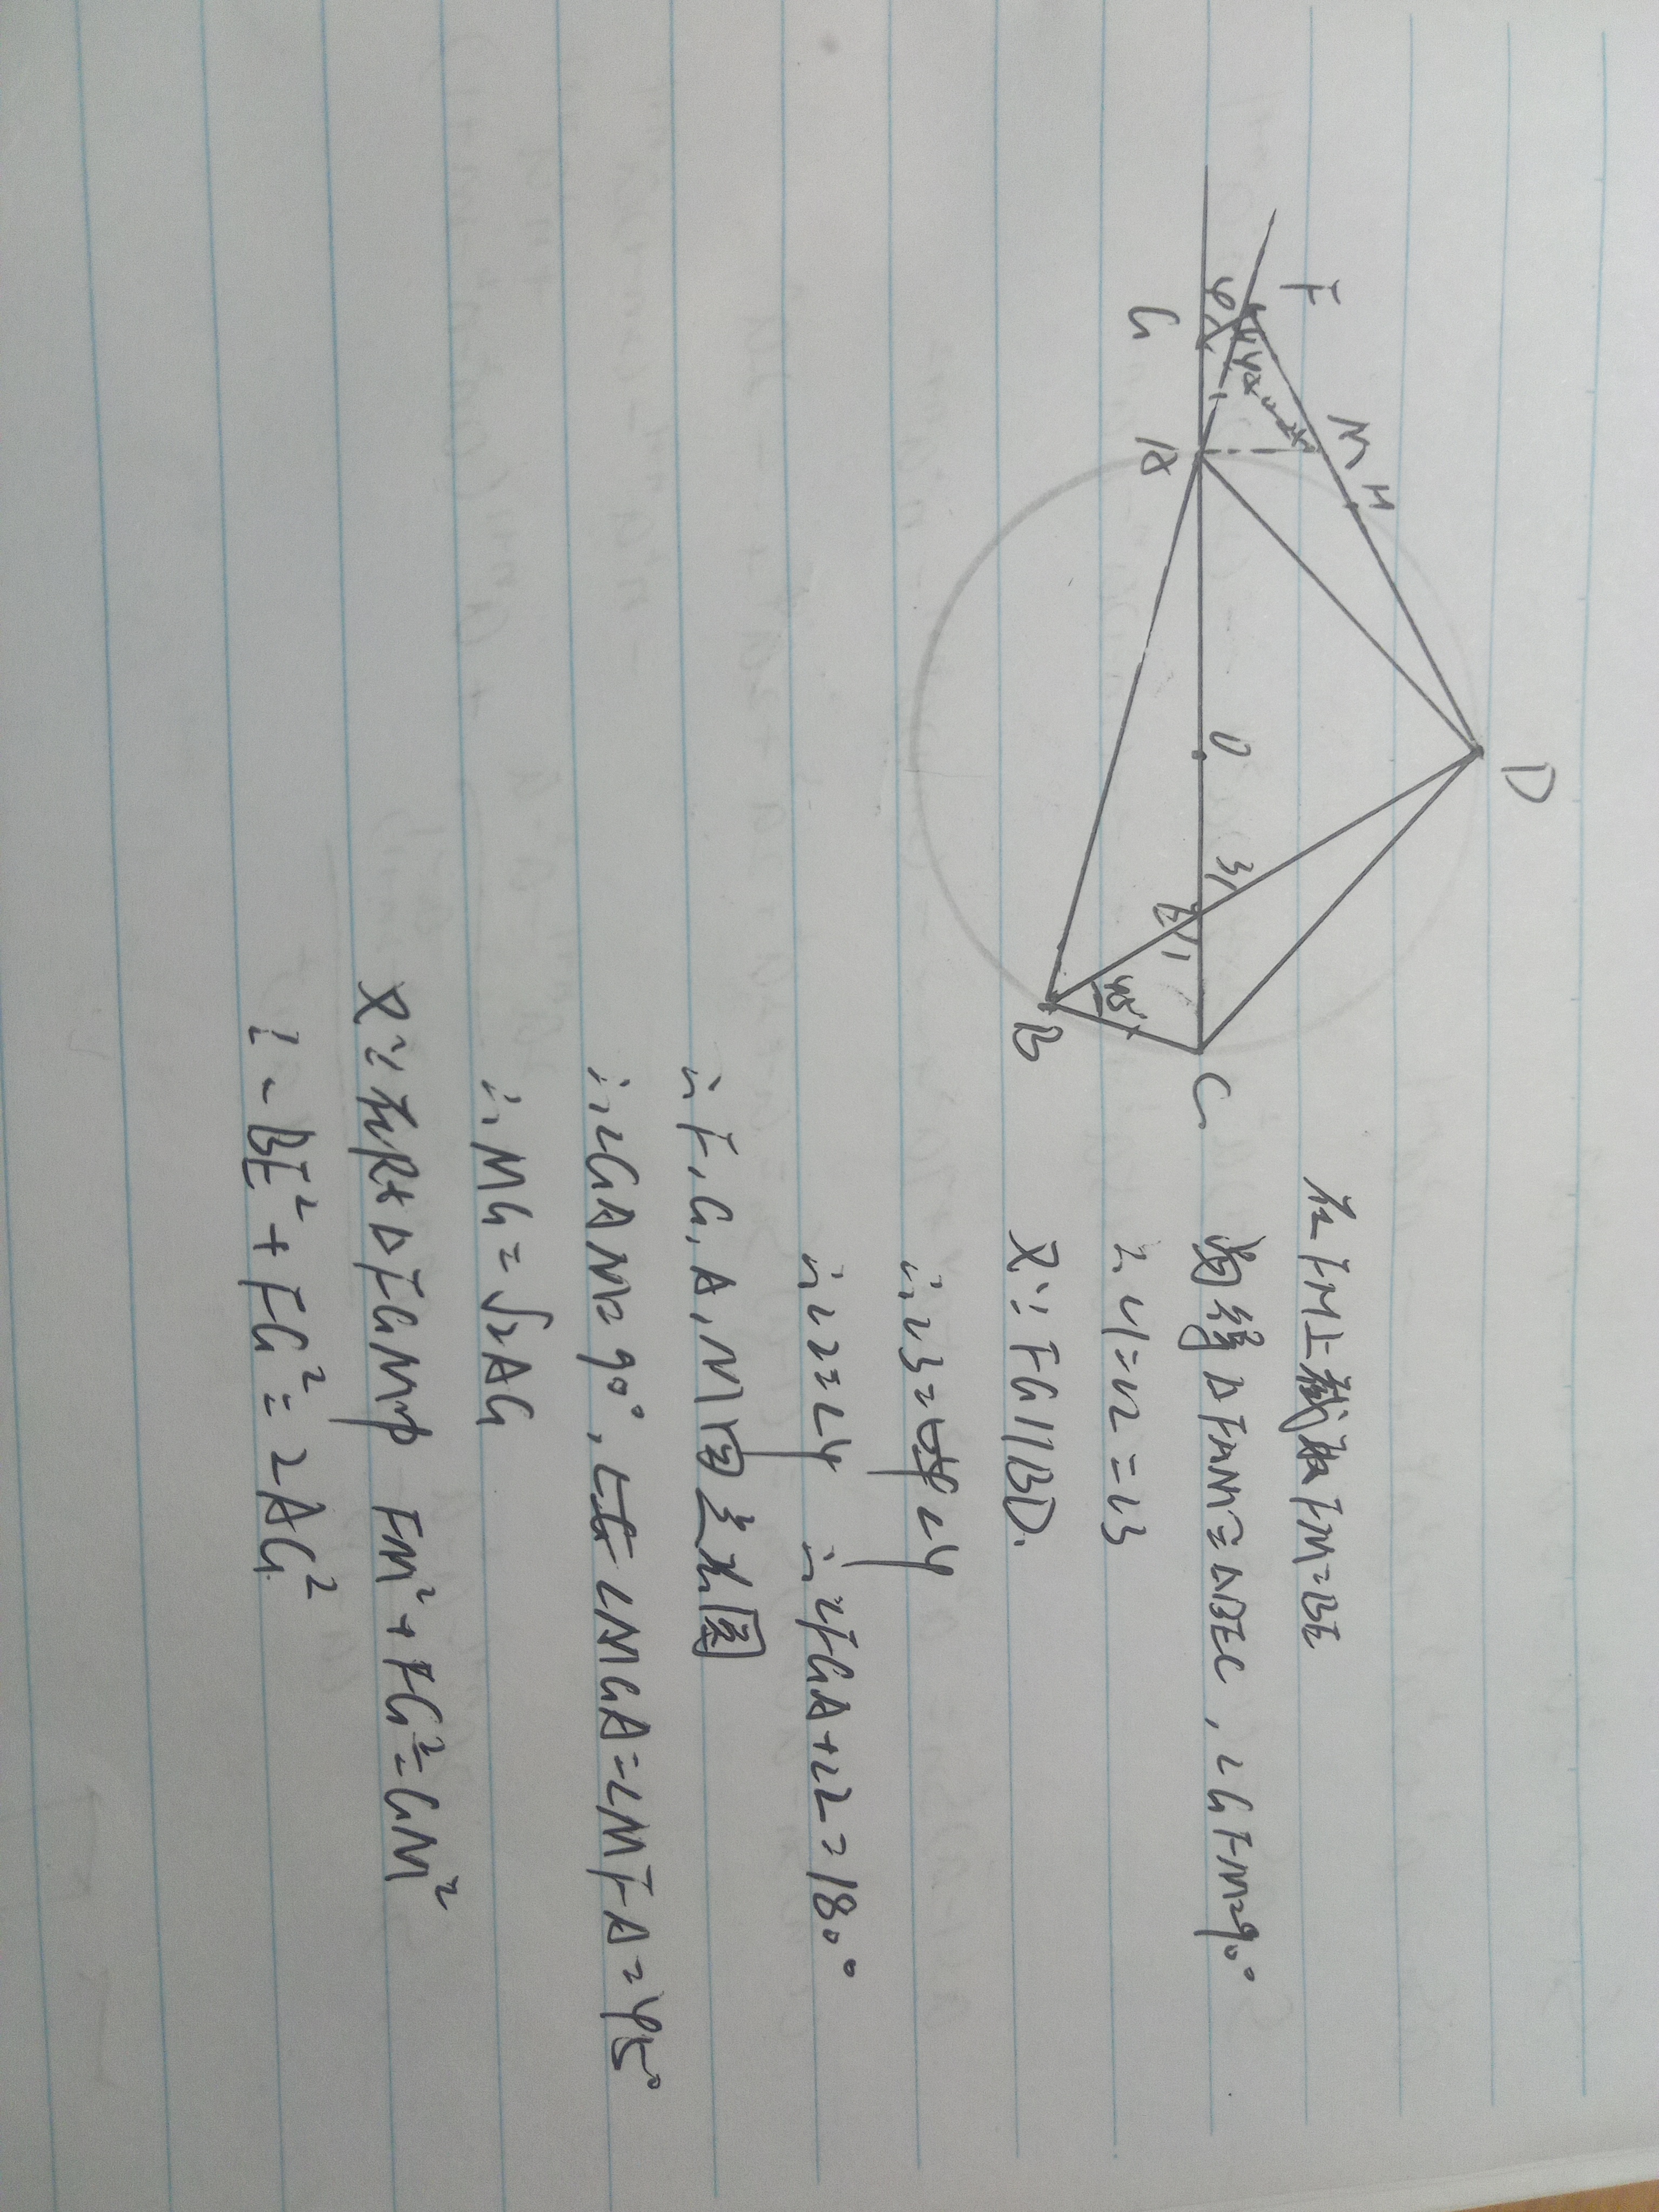 F
M
H
D
G
A
O
E
C
B
4
45°
2
3
1
45°
在FH上截取FM=BE
易得△FAM≌△BEC，∠GFM=90°
∴∠1=∠2=∠3
又∵FG//BD.
∴∠3=∠4
∴∠2=∠4 ∴∠FGA+∠2=180°
∴F,G,A,M四点共圆
∴∠GAM=90°，∠MGA=∠MFA=45°
∴MG=√2AG
又∵在Rt△FGM中 FM²+FG²=GM²
∴BE²+FG²=2AG²